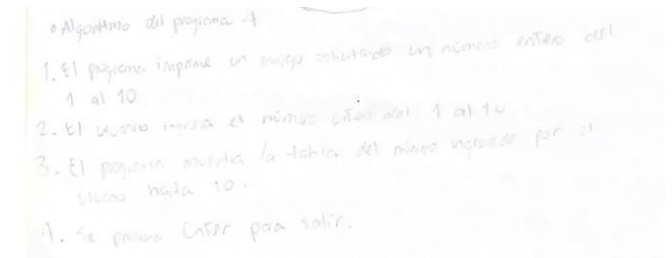 • Algoritmo del programa 4
1. El programa imprime un mensaje solicitando un número entero del
1 al 10.
2. El usuario ingresa el número entero del 1 al 10.
3. El programa muestra la tabla del número ingresado por el
usuario hasta 10.
4. Se presiona Enter para salir.